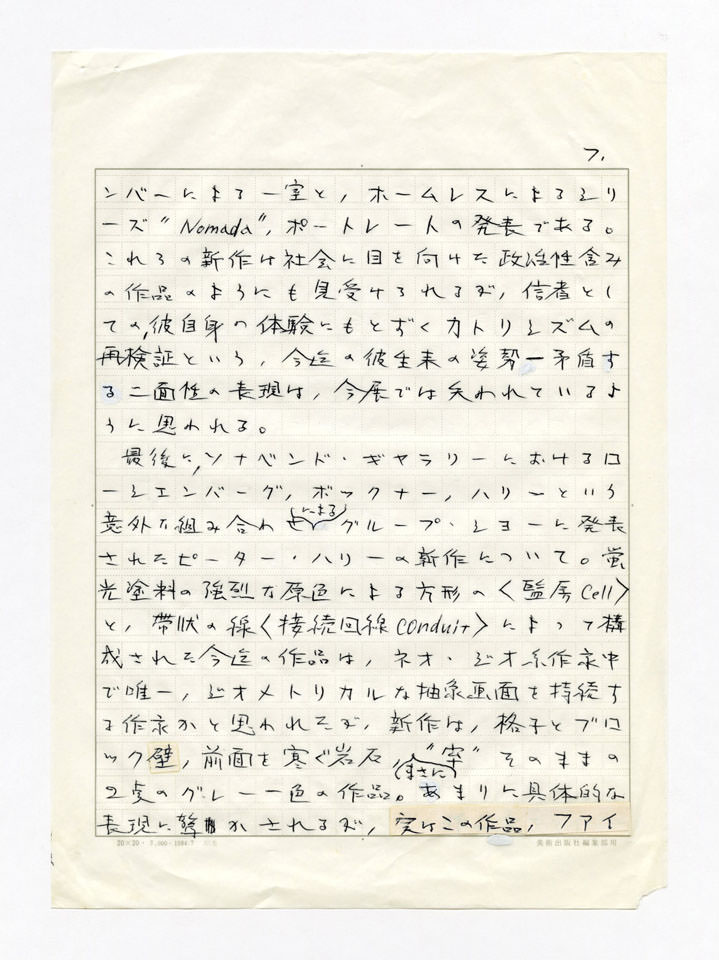 7.
ンバーによる一室と，ホームレスによるシリ
ーズ“Nomada”，ポートレートの発表である。
これらの新作は社会に目を向けた政治性含み
の作品のようにも見受けられるが，信者とし
ての，彼自身の体験にもとずくカトリシズムの
再検証という，今迄の彼生来の姿勢―矛盾す
る二面性の表現は，今展では失われているよ
うに思われる。
最後に，ソナベンド・ギャラリーにおけるロ
ーシエンバーグ，ボックナー，ハリーという
意外な組み合わせによるグループ・ショーに発表
されたピーター・ハリーの新作について。蛍
光塗料の強烈な原色による方形の〈監房Cell〉
と，帯状の線〈接続回線conduit〉によって構
成された今迄の作品は，ネオ・ジオ系作家中
で唯一，ジオメトリカルな抽象画面を持続す
る作家かと思われたが，新作は，格子とブロ
ック壁，前面を塞ぐ岩石，まさに“牢”そのままの
2点のグレー一色の作品。あまりに具体的な
表現に驚かされるが，実はこの作品，ファイ
20×20・7,000-1984.7
美術出版社編集部用